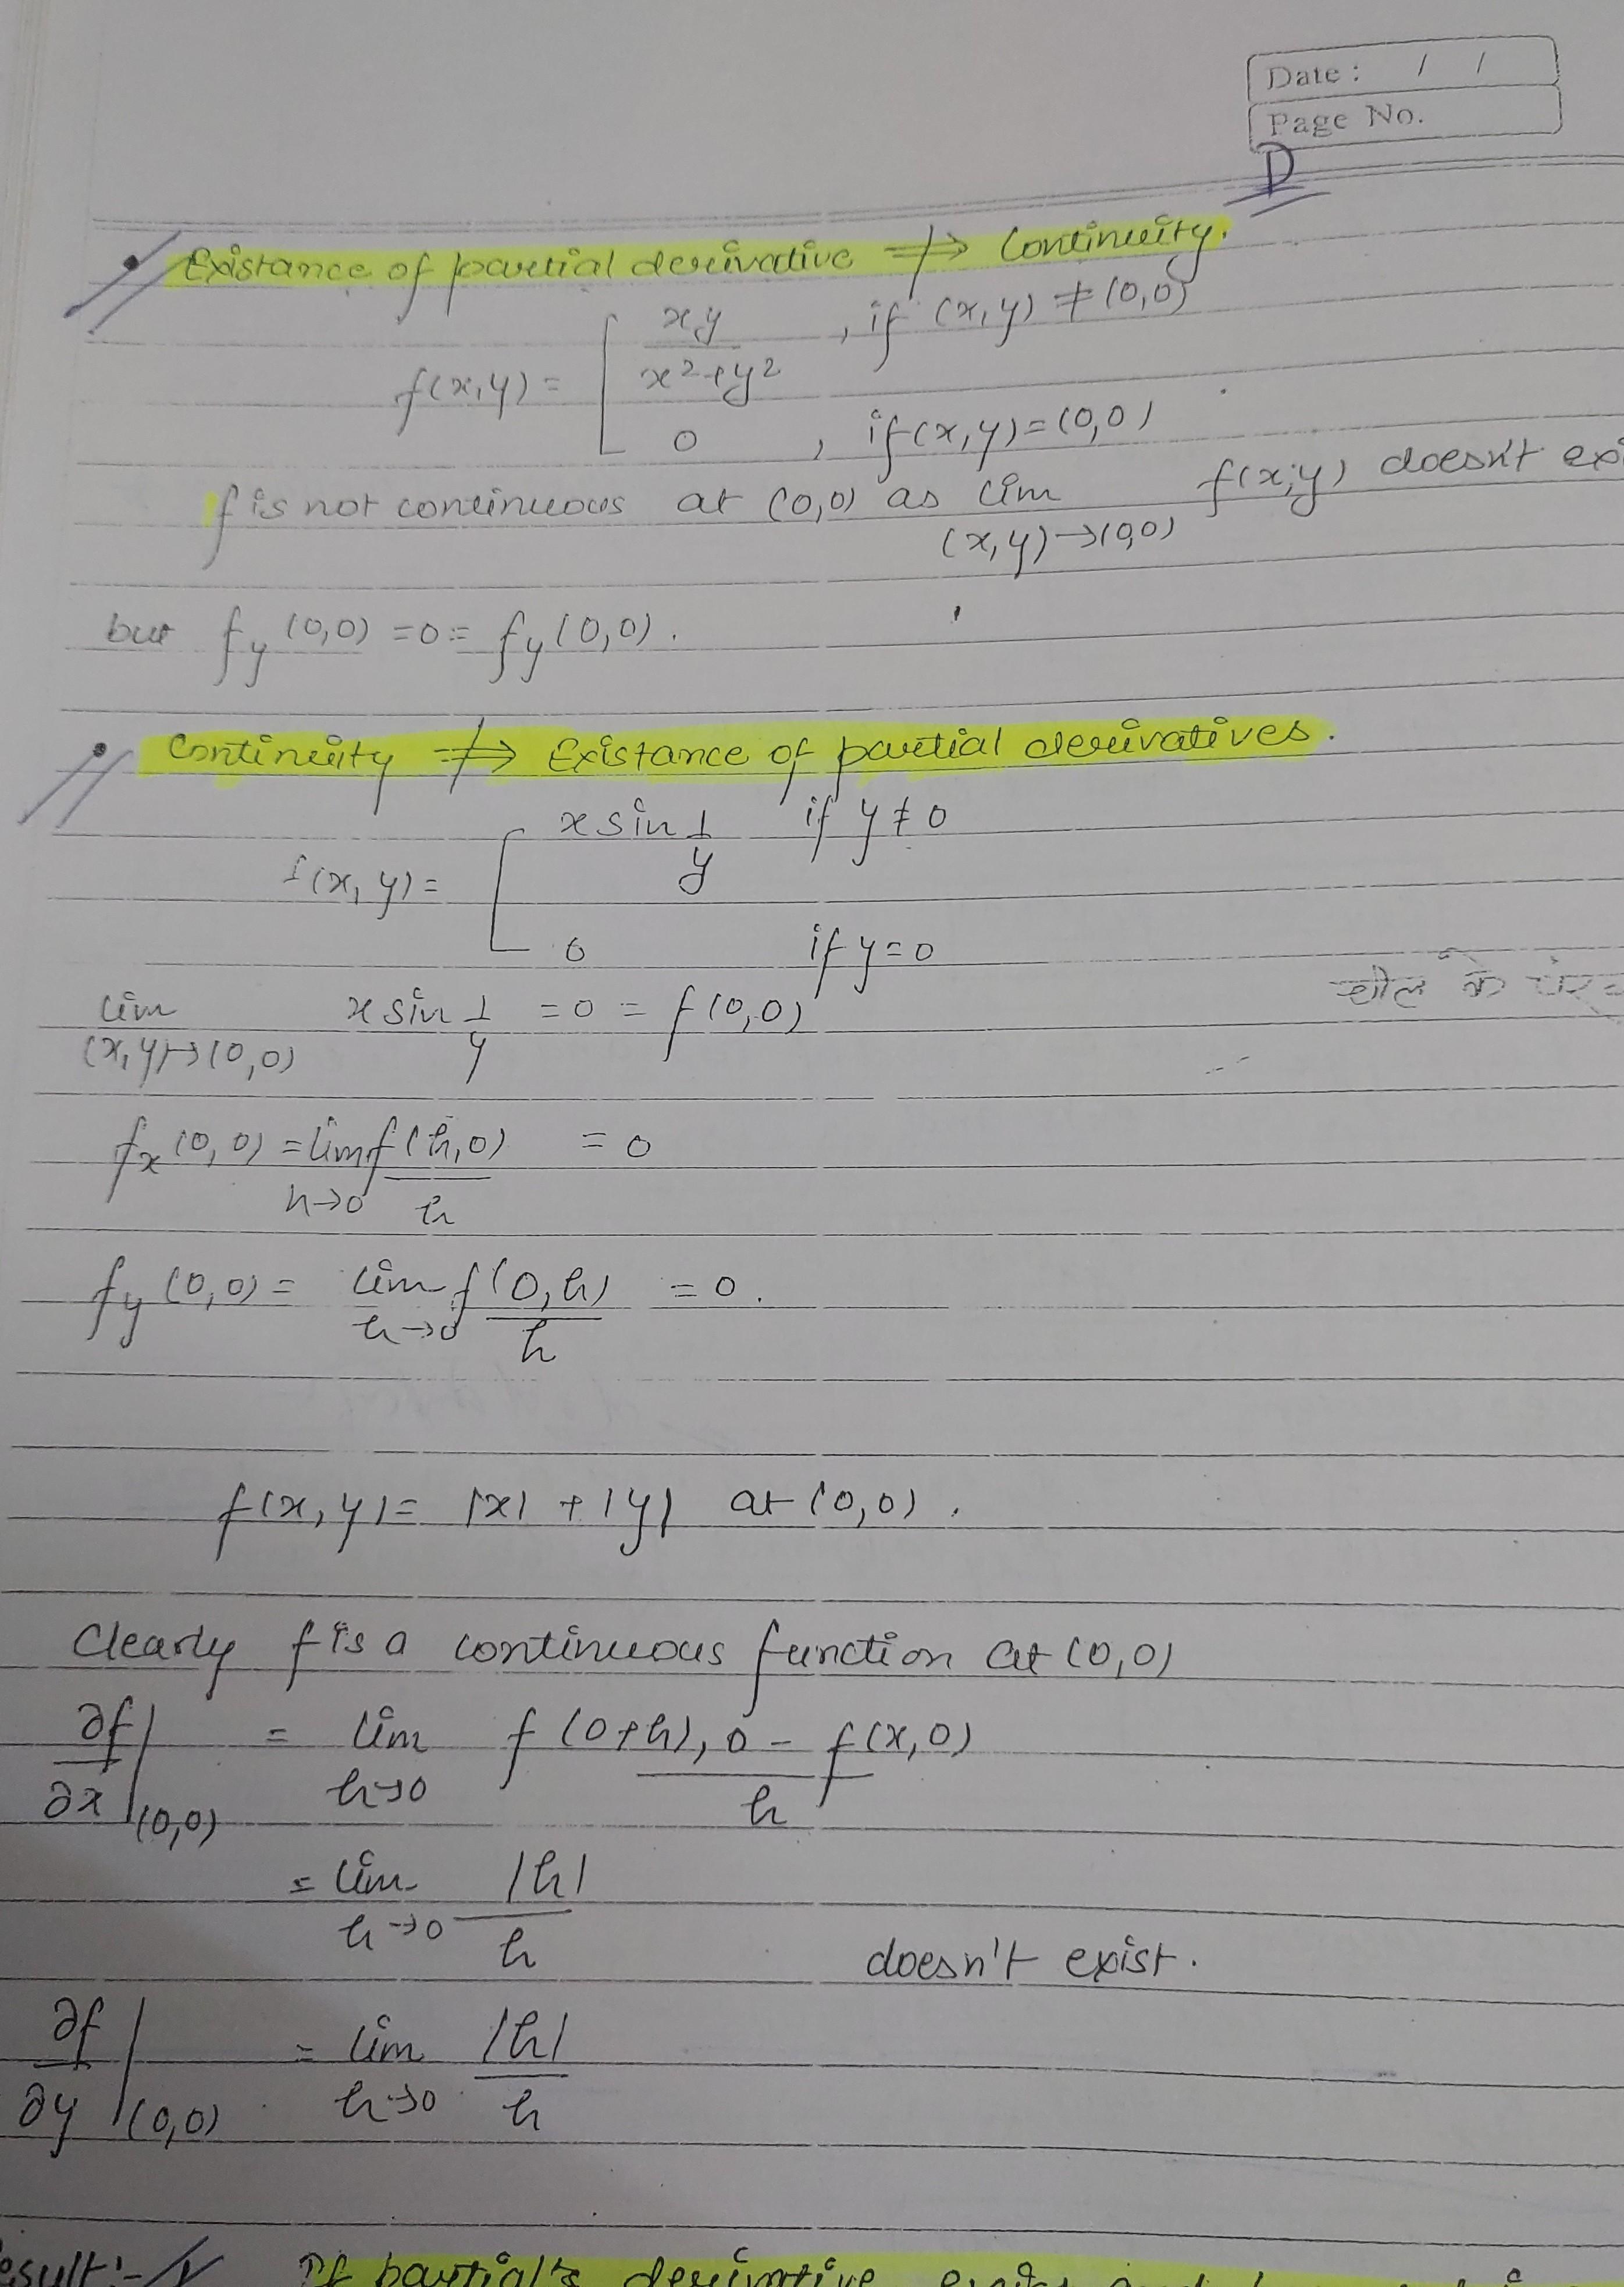 Date : / /
Page No.
D
• Existance of partial derivative ⇏ Continuity.
f(x,y) = [ xy / x²+y² , if (x,y) ≠ (0,0)
0 , if (x,y) = (0,0)
f is not continuous at (0,0) as lim (x,y)→(0,0) f(x,y) doesn't exi
but fy (0,0) = 0 = fy (0,0).
• Continuity ⇏ Existance of partial derivatives.
f(x, y) = [ x sin 1/y if y ≠ 0
0 if y = 0
lim (x,y)→(0,0) x sin 1/y = 0 = f(0,0)
fx (0,0) = lim h→0 f(h,0) / h = 0
fy (0,0) = lim h→0 f(0,h) / h = 0.
f(x,y) = |x| + |y| at (0,0).
Clearly f is a continuous function at (0,0)
∂f/∂x |(0,0) = lim h→0 f (0+h), 0 - f(x,0) / h
= lim h→0 |h| / h
doesn't exist.
∂f/∂y |(0,0) = lim h→0 |h| / h
esult:- If partial's derivative